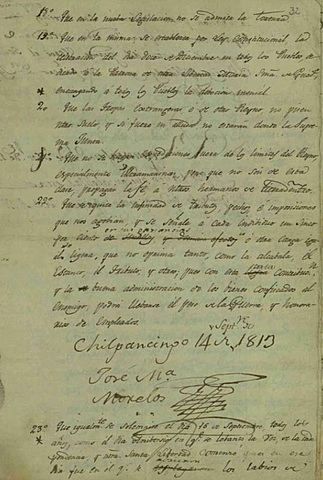 32
18º. Que en la nueva Legislacion no se admita la Tortura.
19º. Que en la misma se establesca por ley Constitucional, la
celebracion del dia doce de Diciembre en todos los Pueblos, de-
dicado a la Patrona de nuestra
encargando a todos los Pueblos la devocion mensal.
20. Que las tropas Extrangeras o de otro Reyno no pisen
nuestro Suelo, y si fuere en ayuda no estaran donde la Supre-
ma Junta.
21ª. Que no se expediciones fuera de los limites del Reyno,
especialmente Ultramarinas, pero que no son de esta
clase, propagar la fé a nuestros hermanos de tierradentro.
22ª. Que se quite la infinidad de tributos, pechos, e imposiciones
que nos agobian, y se señale a cada individuo un cinco
por ciento
o otra carga igual
ligera, que no oprima tanto, como la alcabala, el
Estanco, el Tributo, y otros, pues con esta contribucion
y la buena administracion de los bienes confiscados al
Enemigo, podrá llevarse el peso de la Guerra, y honora-
rios de Empleados.
Chilpancingo 14 de Septre. de 1813
José Mª
Morelos
23ª. Que igualmente se solemnise el dia 16 de Septiembre, todos los
años, como el dia Aniversario en que se levantó la Voz de la Inde-
pendencia, y nuestra Santa Libertad comenzó, pues en ese
dia fue en el que se los labios de